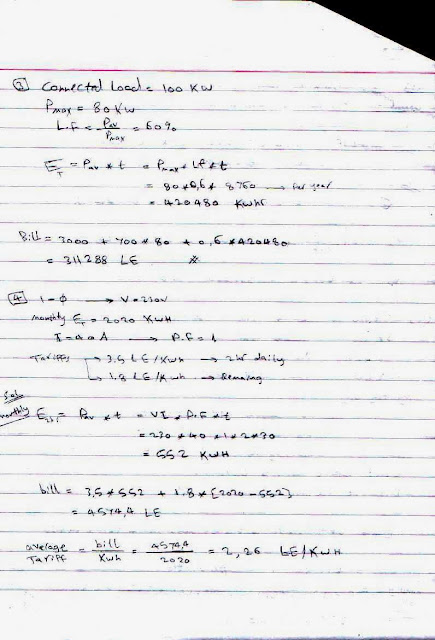 ③ Connected Load = 100 KW
Pmax = 80 KW
L.F = Pav/Pmax = 60%
ET = Pav * t = Pmax * LF * t
= 80 * 0,6 * 8760 → Per year
= 420480 KWhr
Bill = 3000 + 700 * 80 + 0,6 * 420480
= 311288 LE #
④ 1-φ → V = 230V
monthly ET = 2020 KWH
I = 40 A → P.F = 1
Tariffs → 3.5 LE/Kwh → 2hr daily
→ 1.8 LE/Kwh → Remaing
Sol
monthly E2hr = Pav * t = VI * P.F * t
= 230 * 40 * 1 * 2 * 30
= 552 KWH
bill = 3,5 * 552 + 1.8 * [2020 - 552]
= 4574,4 LE
average Tariff = bill/Kwh = 4574,4/2020 = 2,26 LE/KWH